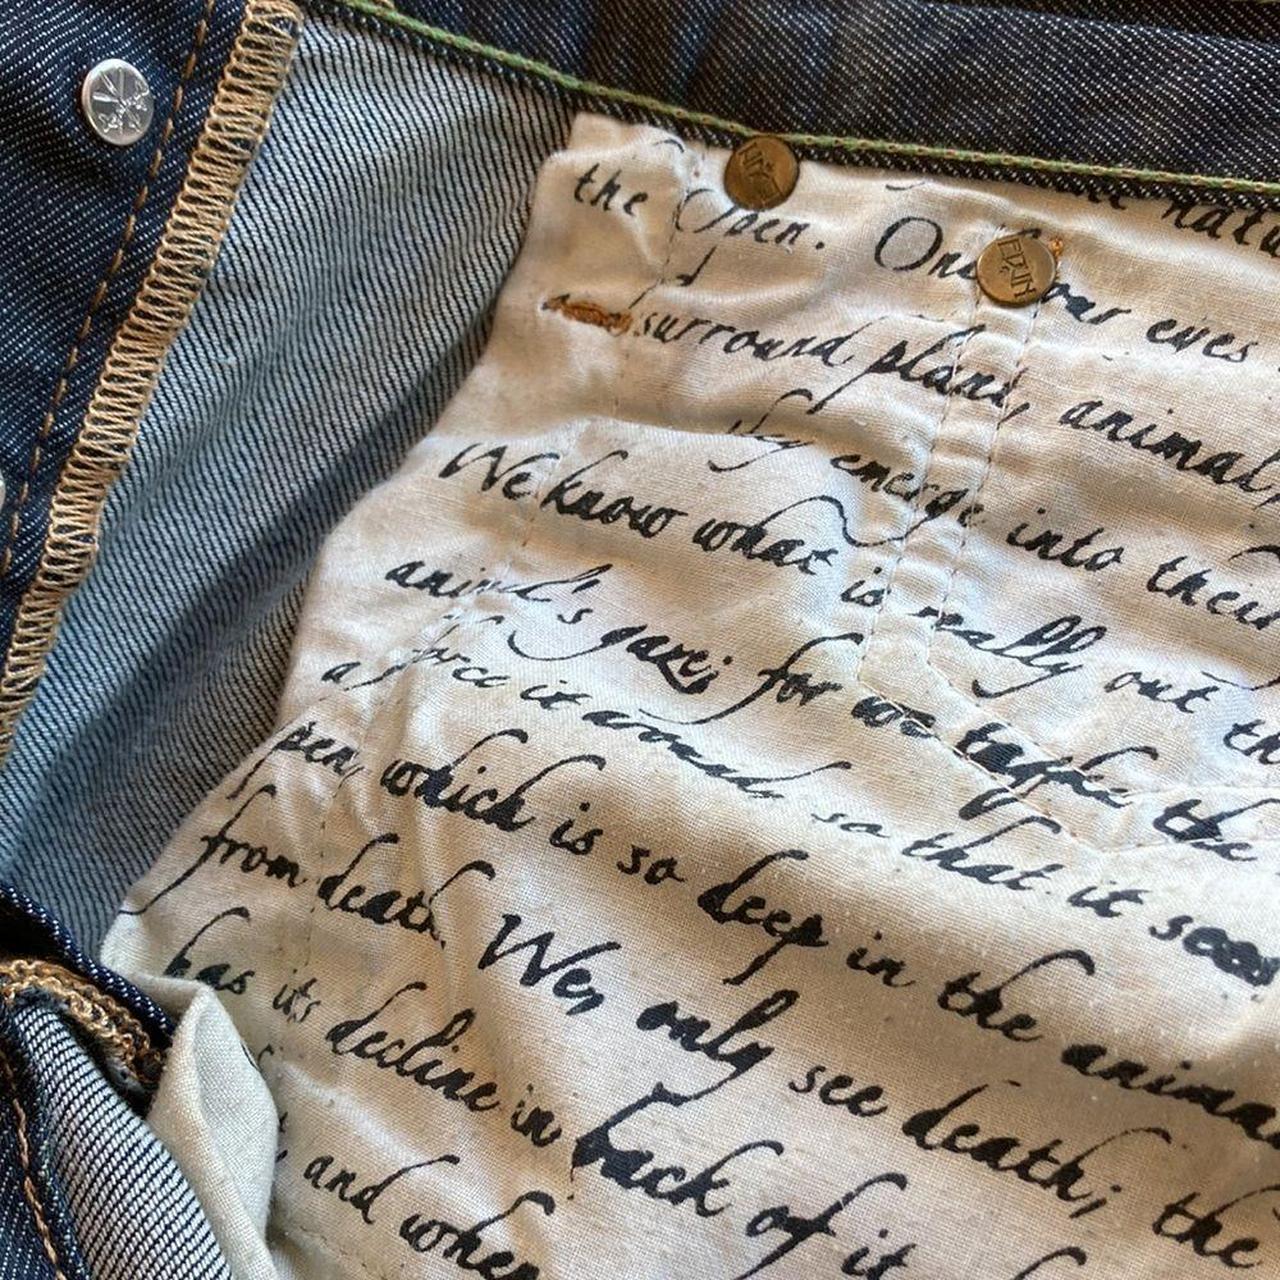 natu
the Open. Only our eyes
surround plant, animal,
they emerge into their
We know what is really out th
animal's gaze; for we take the
a force it around, so that it sees
pen, which is so deep in the anima
from death. We, only see death; the
has its decline in back of it
and when
EDUN